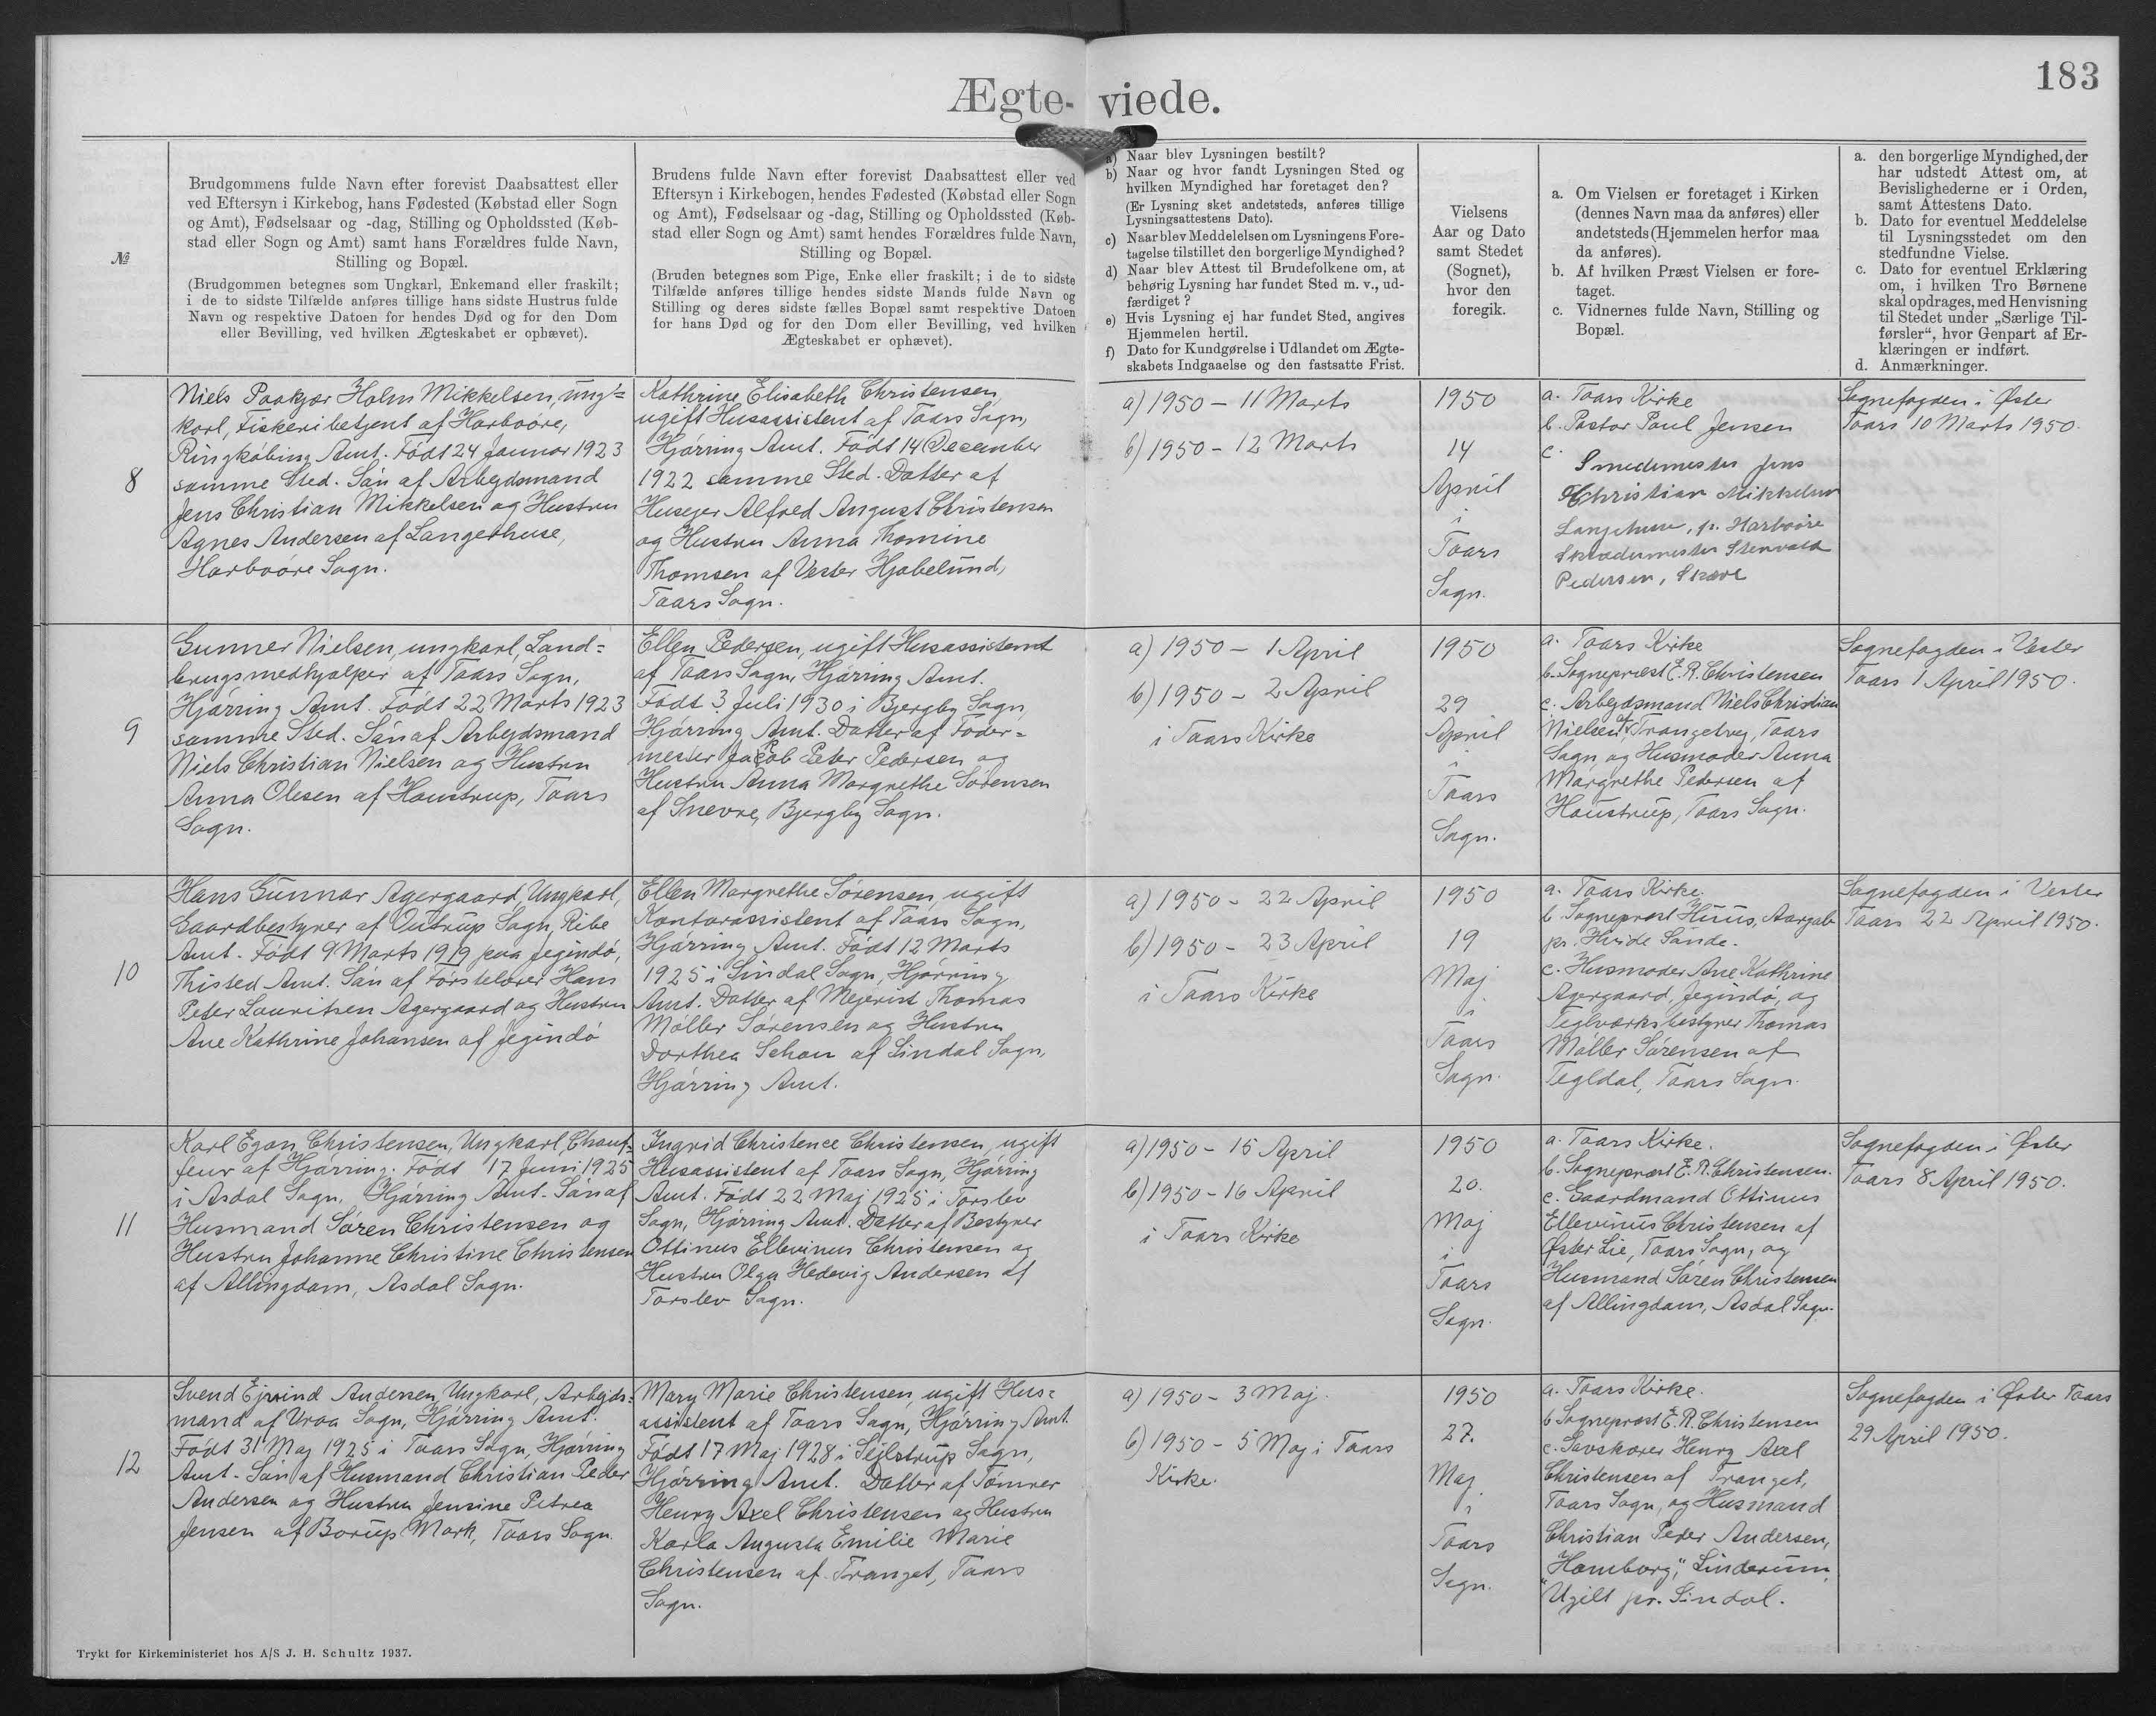 183
Ægte- viede.
№
Brudgommens fulde Navn efter forevist Daabsattest eller
ved Eftersyn i Kirkebog, hans Fødested (Købstad eller Sogn
og Amt), Fødselsaar og -dag, Stilling og Opholdssted (Køb-
stad eller Sogn og Amt) samt hans Forældres fulde Navn,
Stilling og Bopæl.
(Brudgommen betegnes som Ungkarl, Enkemand eller fraskilt;
i de to sidste Tilfælde anføres tillige hans sidste Hustrus fulde
Navn og respektive Datoen for hendes Død og for den Dom
eller Bevilling, ved hvilken Ægteskabet er ophævet).
Brudens fulde Navn efter forevist Daabsattest eller ved
Eftersyn i Kirkebogen, hendes Fødested (Købstad eller Sogn
og Amt), Fødselsaar og -dag, Stilling og Opholdssted (Køb-
stad eller Sogn og Amt) samt hendes Forældres fulde Navn,
Stilling og Bopæl.
(Bruden betegnes som Pige, Enke eller fraskilt; i de to sidste
Tilfælde anføres tillige hendes sidste Mands fulde Navn og
Stilling og deres sidste fælles Bopæl samt respektive Datoen
for hans Død og for den Dom eller Bevilling, ved hvilken
Ægteskabet er ophævet).
a) Naar blev Lysningen bestilt?
b) Naar og hvor fandt Lysningen Sted og
hvilken Myndighed har foretaget den?
(Er Lysning sket andetsteds, anføres tillige
Lysningsattestens Dato).
c) Naar blev Meddelelsen om Lysningens Fore-
tagelse tilstillet den borgerlige Myndighed?
d) Naar blev Attest til Brudefolkene om, at
behørig Lysning har fundet Sted m. v., ud-
færdiget?
e) Hvis Lysning ej har fundet Sted, angives
Hjemmelen hertil.
f) Dato for Kundgørelse i Udlandet om Ægte-
skabets Indgaaelse og den fastsatte Frist.
Vielsens
Aar og Dato
samt Stedet
(Sognet),
hvor den
foregik.
a. Om Vielsen er foretaget i Kirken
(dennes Navn maa da anføres) eller
andetsteds (Hjemmelen herfor maa
da anføres).
b. Af hvilken Præst Vielsen er fore-
taget.
c. Vidnernes fulde Navn, Stilling og
Bopæl.
a. den borgerlige Myndighed, der
har udstedt Attest om, at
Bevislighederne er i Orden,
samt Attestens Dato.
b. Dato for eventuel Meddelelse
til Lysningsstedet om den
stedfundne Vielse.
c. Dato for eventuel Erklæring
om, i hvilken Tro Børnene
skal opdrages, med Henvisning
til Stedet under „Særlige Til-
førsler“, hvor Genpart af Er-
klæringen er indført.
d. Anmærkninger.
8
Niels Paakjær Holm Mikkelsen, ung=
karl, Fiskeribetjent af Harboöre,
Ringköbing Amt. Födt 24 Januar 1923
samme Sted. Sön af Arbejdsmand
Jens Christian Mikkelsen og Hustru
Agnes Andersen af Langerhuse,
Harboöre Sogn.
Kathrine Elisabeth Christensen,
ugift Husassistent af Taars Sogn,
Hjörring Amt. Födt 14 December
1922 samme Sted. Datter af
Husejer Alfred August Christensen
og Hustru Anna Thomine
Thomsen af Vester Hjabelund,
Taars Sogn.
a) 1950 - 11 Marts
b) 1950 - 12 Marts
1950
14
April
i
Taars
Sogn.
a. Taars Kirke
b. Pastor Poul Jensen
c. Smedemester Jens
Christian Mikkelsen
Langehuse, p. Harboöre
Skrædermester Stenvald
Pedersen, Skæve
Sognefogden i Øster
Taars 10 Marts 1950.
9
Gunner Nielsen, ungkarl, Land=
brugsmedhjælper af Taars Sogn,
Hjörring Amt. Födt 22 Marts 1923
samme Sted. Sön af Arbejdsmand
Niels Christian Nielsen og Hustru
Anna Olesen af Haustrup, Taars
Sogn.
Ellen Pedersen, ugift Husassistent
af Taars Sogn, Hjörring Amt.
Födt 3. Juli 1930 i Bjergby Sogn,
Hjörring Amt. Datter af Foder=
mester Jacob Peter Pedersen og
Hustru Anna Margrethe Sörensen
af Snevre, Bjergby Sogn.
a) 1950 - 1 April
b) 1950 - 2 April
i Taars Kirke
1950
29
April
i
Taars
Sogn.
a. Taars Kirke
b. Sognepræst E. R. Christensen
c. Arbejdsmand Niels Christian
Nielsen af Trangetvej, Taars
Sogn og Husmoder Anna
Margrethe Pedersen af
Haustrup, Taars Sogn.
Sognefogden i Vester
Taars 1 April 1950.
10
Hans Gunnar Agergaard, Ungkarl,
Gaardbestyrer af Outrup Sogn, Ribe
Amt. Födt 9 Marts 1919 paa Jegindö,
Thisted Amt. Sön af Förstelærer Hans
Peter Lauritsen Agergaard og Hustru
Ane Kathrine Johansen af Jegindö
Ellen Margrethe Sörensen, ugift
Kontorassistent af Taars Sogn,
Hjörring Amt. Födt 12 Marts
1925 i Sindal Sogn, Hjörring
Amt. Datter af Mejerist Thomas
Möller Sörensen og Hustru
Dorthea Schou af Sindal Sogn,
Hjörring Amt.
a) 1950 - 22 April
b) 1950 - 23 April
i Taars Kirke
1950
19
Maj
i
Taars
Sogn.
a. Taars Kirke.
b. Sognepræst Huus, Aargab
pr. Hvide Sande.
c. Husmoder Ane Kathrine
Agergaard, Jegindö, og
Teglværksbestyrer Thomas
Möller Sörensen af
Tegldal, Taars Sogn.
Sognefogden i Vester
Taars 22 April 1950.
11
Karl Egon Christensen, Ungkarl, Chauf=
feur af Hjörring. Födt 17 Juni 1925
i Asdal Sogn, Hjörring Amt. Sön af
Husmand Sören Christensen og
Hustru Johanne Christine Christensen
af Allingdam, Asdal Sogn.
Ingrid Christence Christensen, ugift
Husassistent af Taars Sogn, Hjörring
Amt. Födt 22 Maj 1925 i Torslev
Sogn, Hjörring Amt. Datter af Bestyrer
Ottinus Ellevinus Christensen og
Hustru Olga Hedevig Andersen af
Torslev Sogn.
a) 1950 - 15 April
b) 1950 - 16 April
i Taars Kirke
1950
20.
Maj
i
Taars
Sogn.
a. Taars Kirke.
b. Sognepræst E. R. Christensen.
c. Gaardmand Ottinus
Ellevinus Christensen af
Øster Lie, Taars Sogn, og
Husmand Sören Christensen
af Allingdam, Asdal Sogn.
Sognefogden i Øster
Taars 8 April 1950.
12
Svend Ejvind Andersen, Ungkarl, Arbejds=
mand af Vraa Sogn, Hjörring Amt.
Födt 31 Maj 1925 i Taars Sogn, Hjörring
Amt. Sön af Husmand Christian Peder
Andersen og Hustru Jensine Petrea
Jensen af Borup Mark, Taars Sogn.
Mary Marie Christensen, ugift Hus=
assistent af Taars Sogn, Hjörring Amt.
Födt 17 Maj 1928 i Sejlstrup Sogn,
Hjörring Amt. Datter af Tömrer
Henry Axel Christensen og Hustru
Karla Augusta Emilie Marie
Christensen af Tranget, Taars
Sogn.
a) 1950 - 3 Maj.
b) 1950 - 5 Maj i Taars
Kirke.
1950
27.
Maj
i
Taars
Sogn.
a. Taars Kirke.
b Sognepræst E. R. Christensen
c. Savskærer Henry Axel
Christensen af Tranget,
Taars Sogn, og Husmand
Christian Peder Andersen,
"Hamborg", Linderum,
Ugilt pr. Sindal.
Sognefogden i Øster Taars
29 April 1950.
Trykt for Kirkeministeriet hos A/S J. H. Schultz 1937.